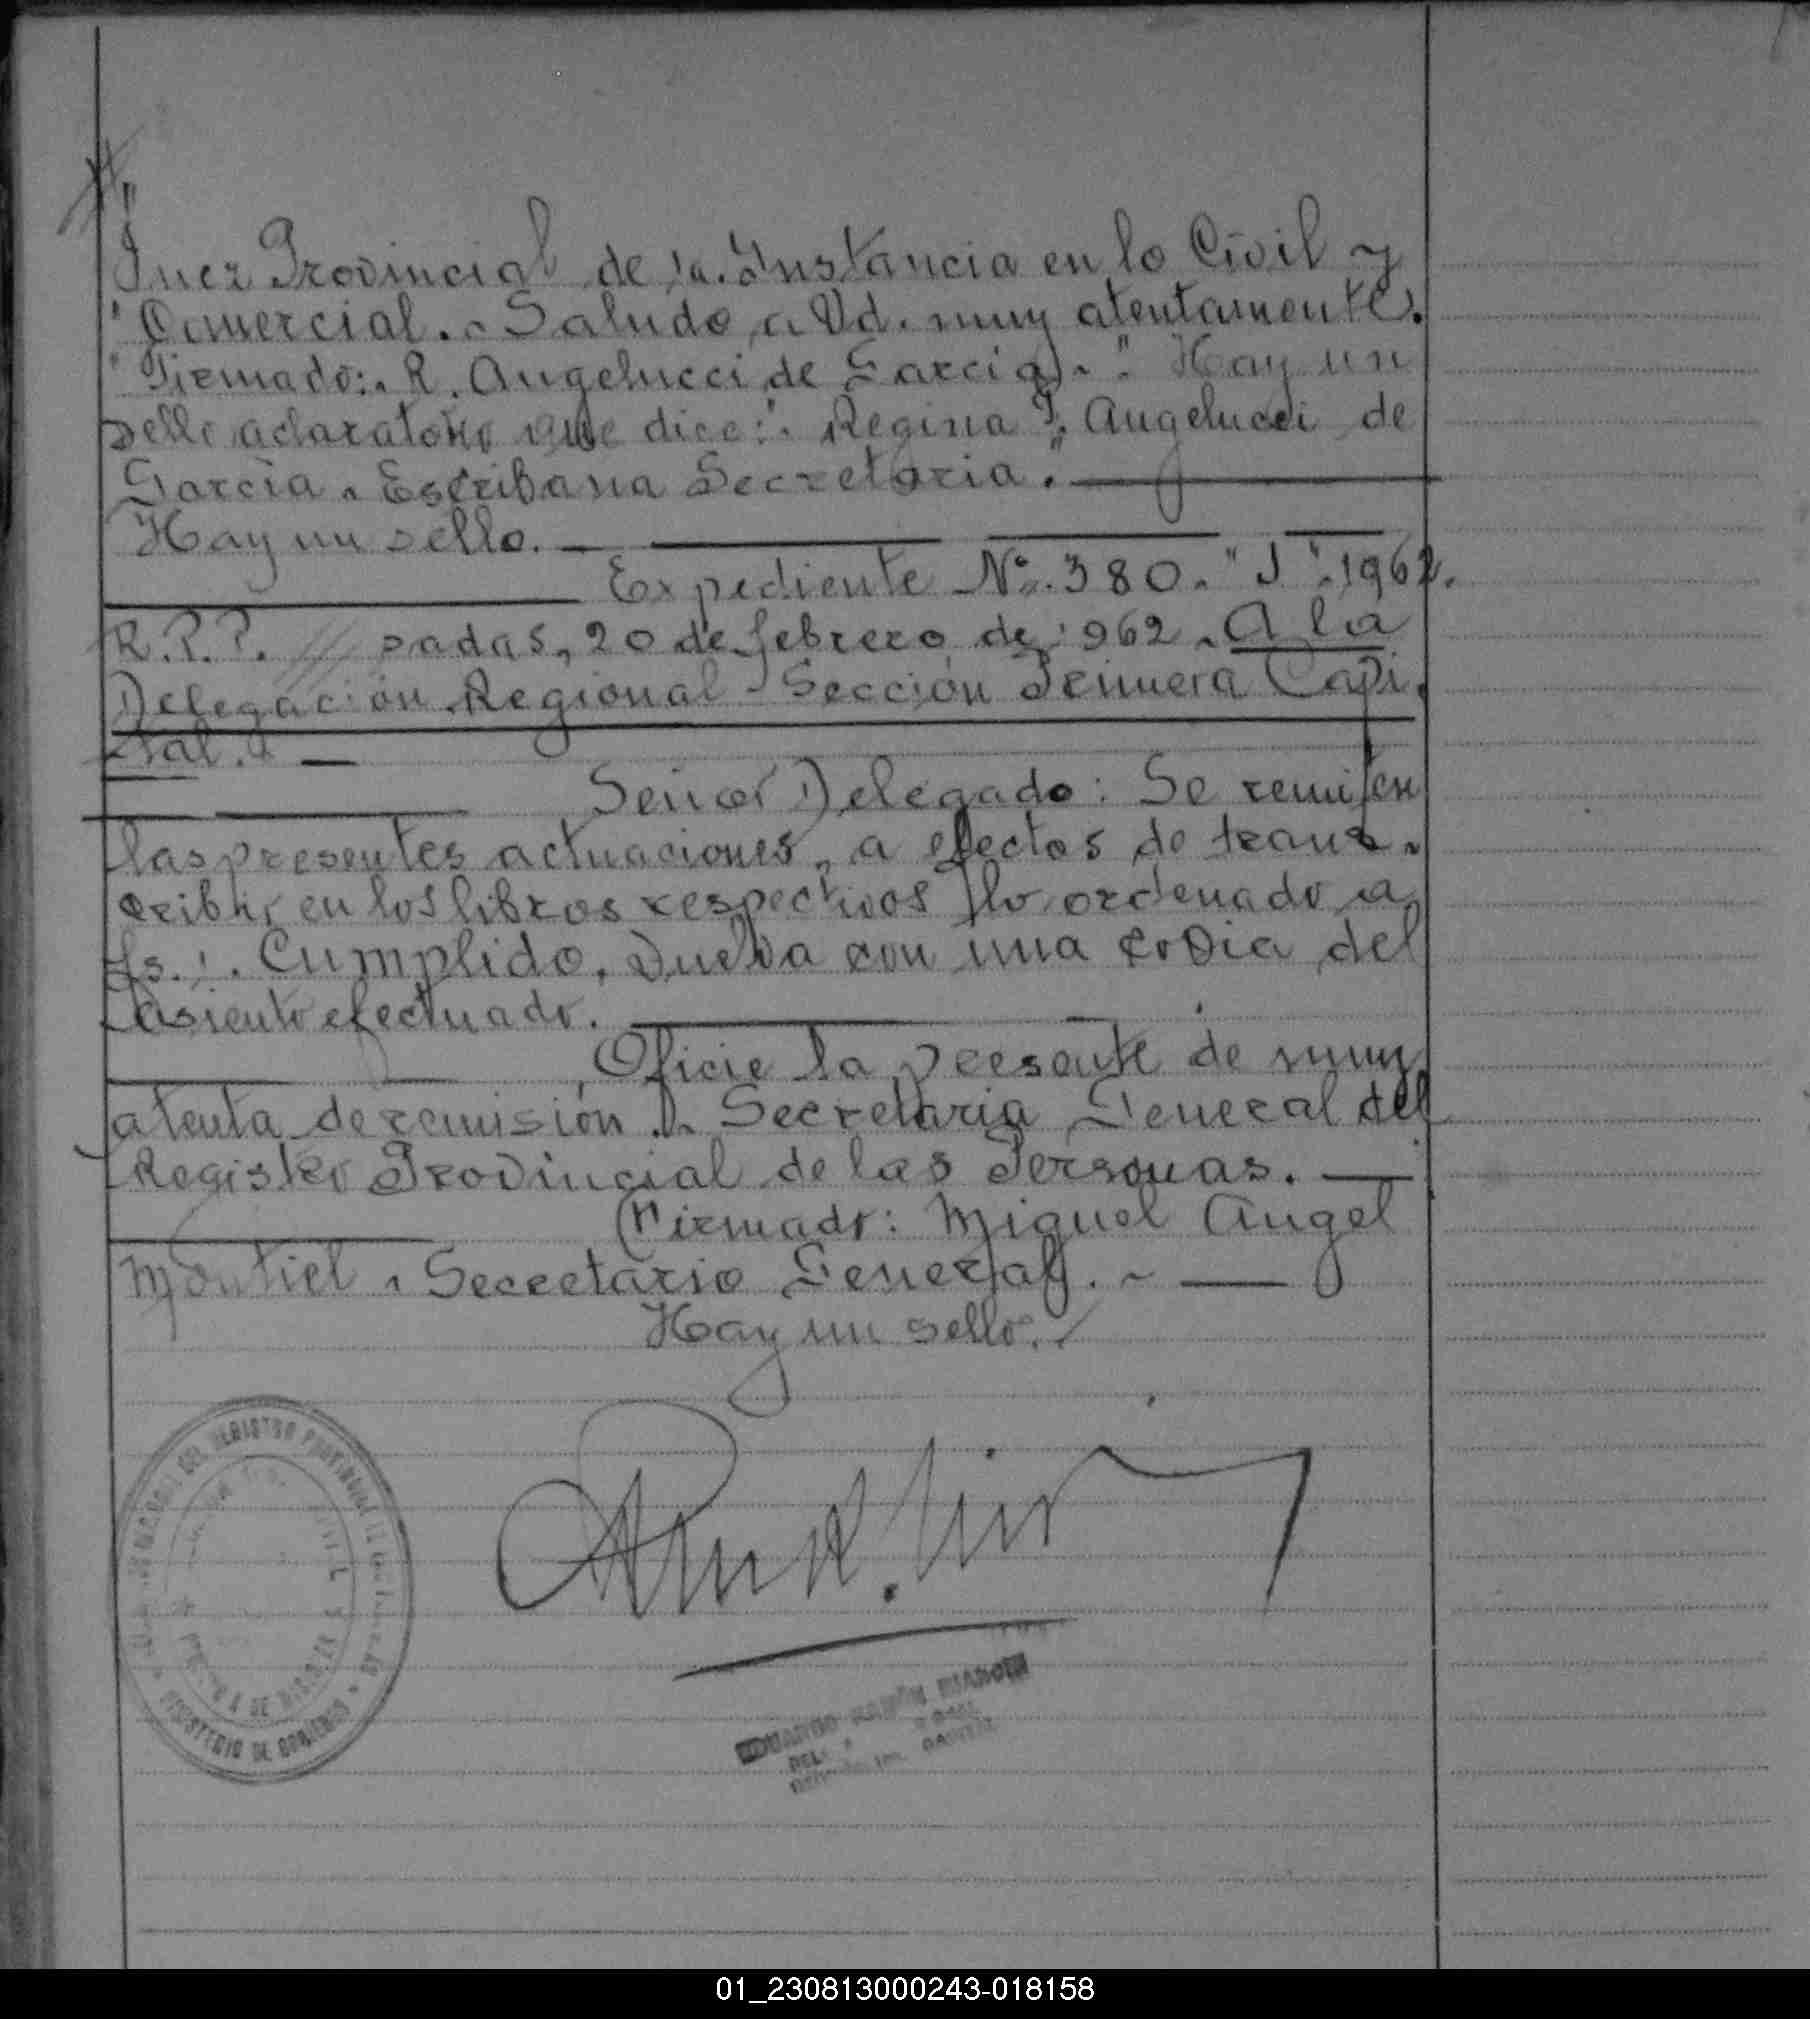 "Juez Provincial de 1a. Instancia en lo Civil y
"Comercial.- Saludo a Ud. muy atentamente.
"Firmado:. R. Angelucci de Garcia).-". Hay un
sello aclaratorio que dice:". Regina P. Angelucci de
García. Escribana Secretaria."
Hay un sello.
Expediente Nº. 380. "J". 1962.
R.P.P. /// sadas, 20 de febrero de 1962.- A la
Delegación Regional - Sección Primera Capi-
tal.-
Señor Delegado: Se remiten
las presentes actuaciones, a efectos de trans-
cribir en los libros respectivos lo ordenado a
fs. 1. Cumplido, vuelva con una copia del
asiento efectuado.
Oficie la presente de muy
atenta de remisión.- Secretaria General del
Registro Provincial de las Personas.
(Firmado: Miguel Angel
Montiel. Secretario General.-
Hay un sello.-
REGISTRO PROVINCIAL DE LAS PERSONAS
MINISTERIO DE GOBIERNO
EDUARDO RAMÓN
CAPITAL
01_230813000243-018158